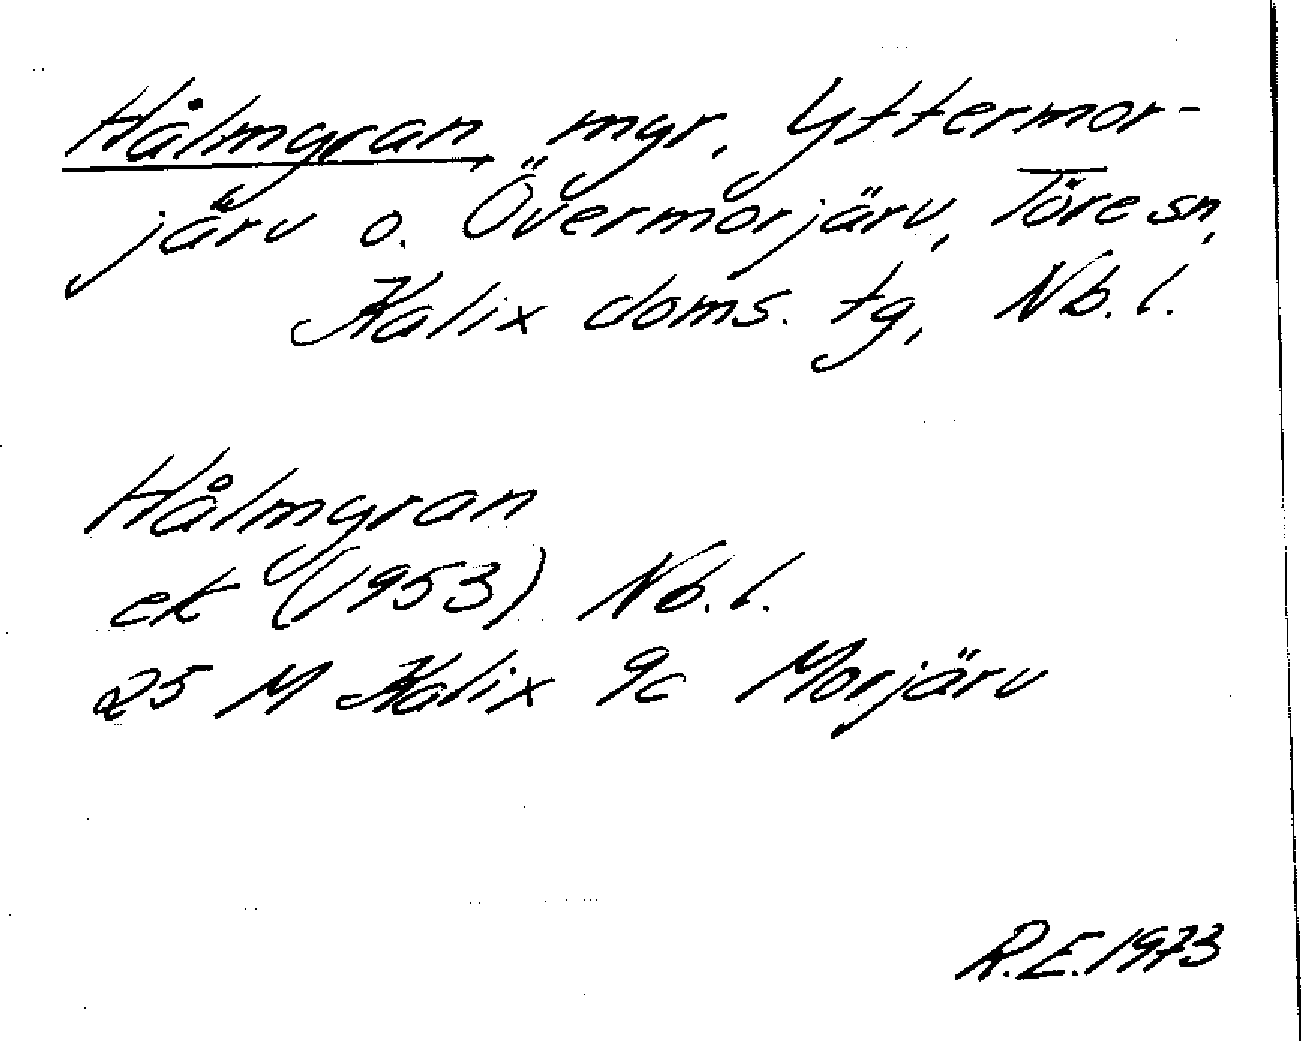 Hålmyran, myr, Yttermor-
järv o. Övermorjärv, Töre sn,
Kalix doms. tg, Nb. l.
Hålmyran
ek (1953) Nb. l.
25 M Kalix 9c Morjärv
R.E. 1973